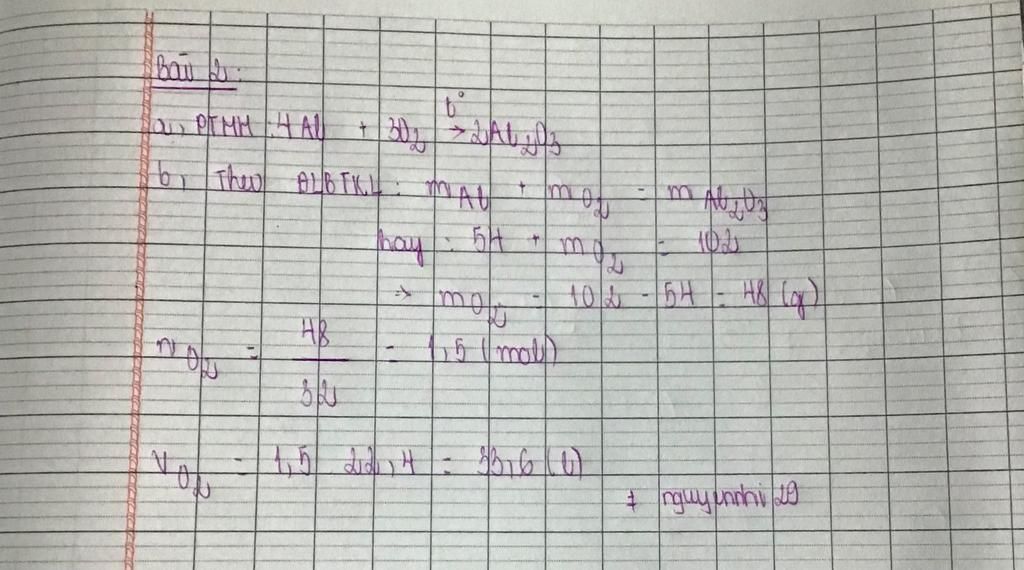 Bài 2:
a, PTHH: 4Al + 3O2 t° → 2Al2O3
b, Theo ĐLBTKL: mAl + mO2 = mAl2O3
hay: 54 + mO2 = 102
=> mO2 = 102 - 54 = 48 (g)
nO2 = 48/32 = 1,5 (mol)
VO2 = 1,5 . 22,4 = 33,6 (l)
# nguyennhi29